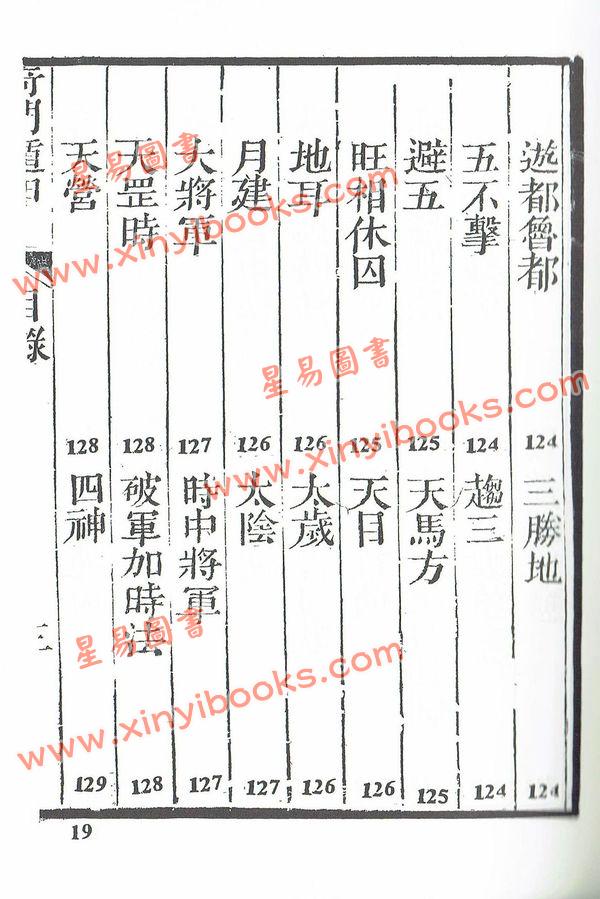 遊都魯都 124 三勝地 124
五不擊 124 趨三 124
避五 125 天馬方 125
旺相休囚 125 天目 126
地耳 126 太歲 126
月建 126 太陰 127
大將軍 127 時中將軍 127
天罡時 128 破軍加時法 128
天營 128 四神 129
奇門遁甲 目錄 三
19
星易圖書
www.xinyibooks.com
星易圖書
www.xinyibooks.com
星易圖書
www.xinyibooks.com